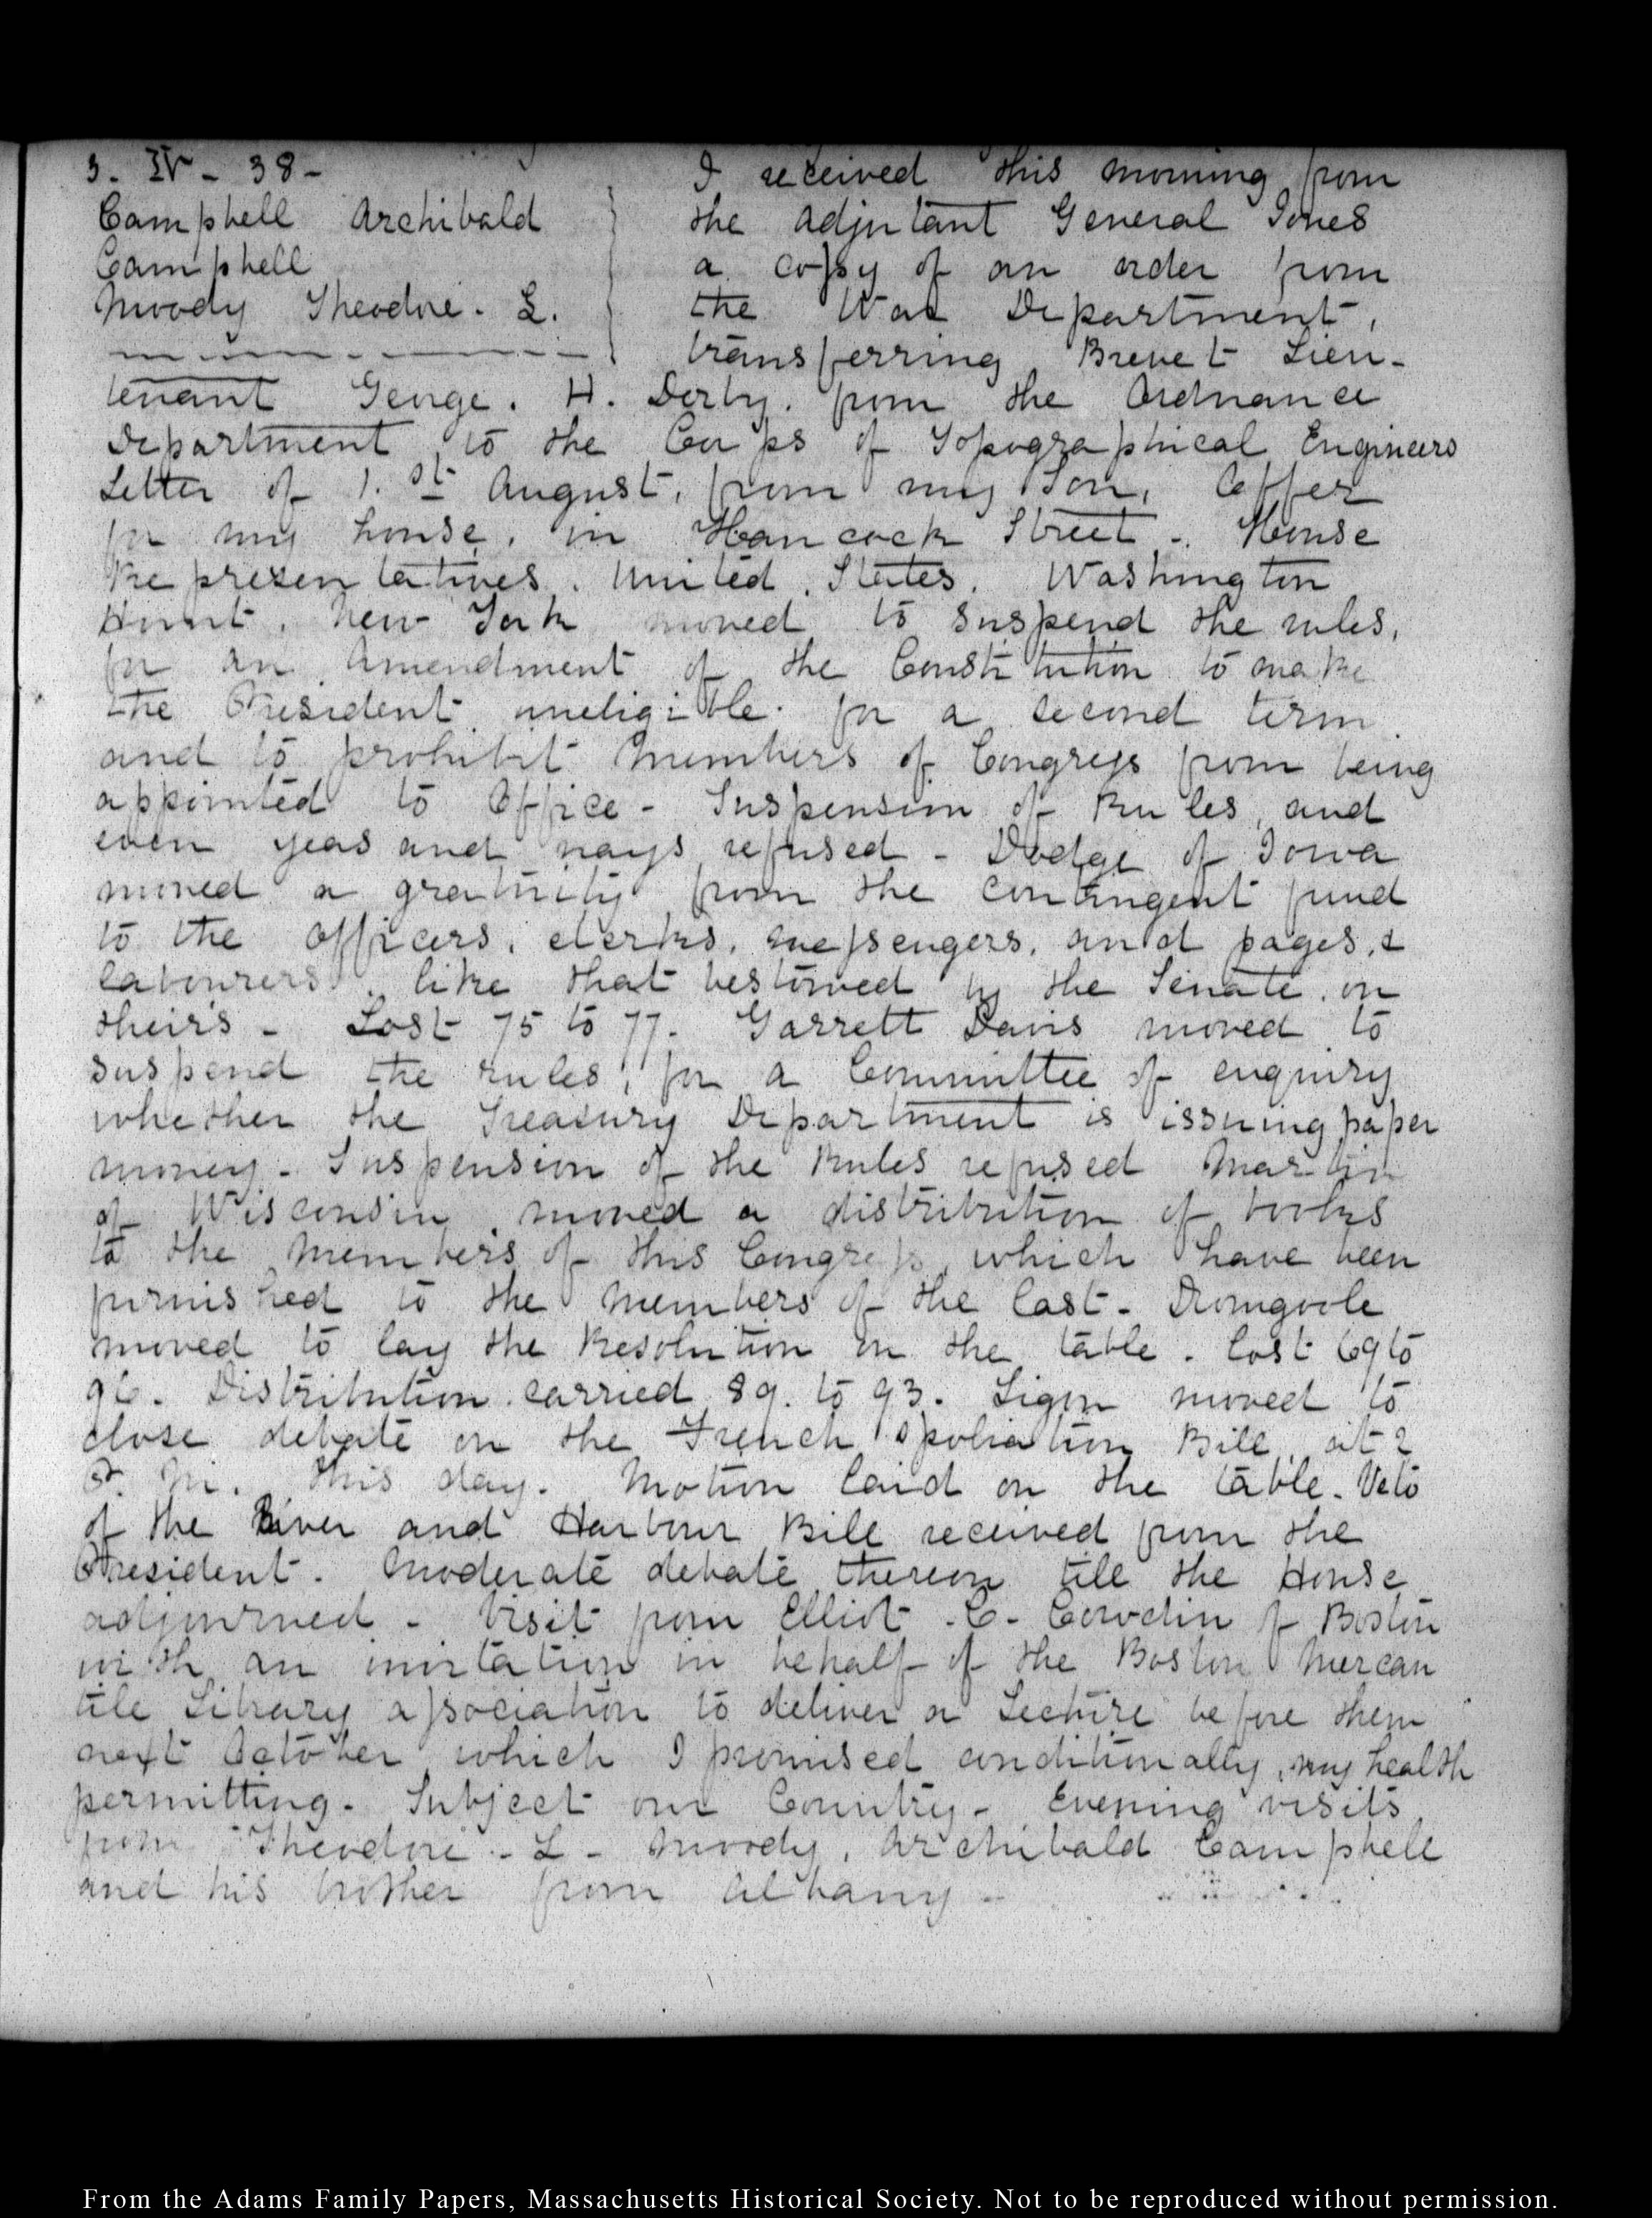 3. IV - 38 -
Campbell Archibald
Campbell
Moody Theodore. L.
I received this morning from
the Adjutant General Jones
a copy of an order from
the War Department,
transferring Brevet Lieu-
tenant George. H. Derby. from the Ordnance
Department, to the Corps of Topographical Engineers
Letter of 1.st August, from my Son,
for my house, in Hancock Street -. House
Representatives. United, States. Washington
Hunt. New-York moved to suspend the rules,
for an amendment of the Constitution to make
the President ineligible. for a second term.
and to prohibit Members of Congress from being
appointed to Office - Suspension of Rules, and
even yeas and nays, refused - Dodge of Iowa
moved a gratuity from the contingent fund
to the Officers, clerks, messengers, and pages, &
labourers, like that bestowed by the Senate, on
theirs - Lost 75 to 77. Garrett Davis moved to
suspend the rules, for a Committee of enquiry
whether the Treasury Department is issuing paper
money - Suspension of the Rules refused Martin
of Wisconsin, moved a distribution of books
to the Members of this Congress, which have been
furnished to the Members of the last - Dromgoole
moved to lay the Resolution on the table. lost 69 to
96. Distribution carried 89. to 93. Ligon moved to
close debate on the French Spoliation Bill, at 2
P. M. this day. Motion laid on the table. Veto
of the River and Harbour Bill received from the
President. Moderate debate thereon till the House
adjourned - Visit from Elliot - C - Cowdin of Boston
with an invitation in behalf of the Boston Mercan
tile Library association to deliver a Lecture before them
next October which I promised conditionally, my health
permitting - Subject our Country - Evening visits
from Theodore - L - Moody, Archibald Campbell
and his brother from Albany -
From the Adams Family Papers, Massachusetts Historical Society. Not to be reproduced without permission.